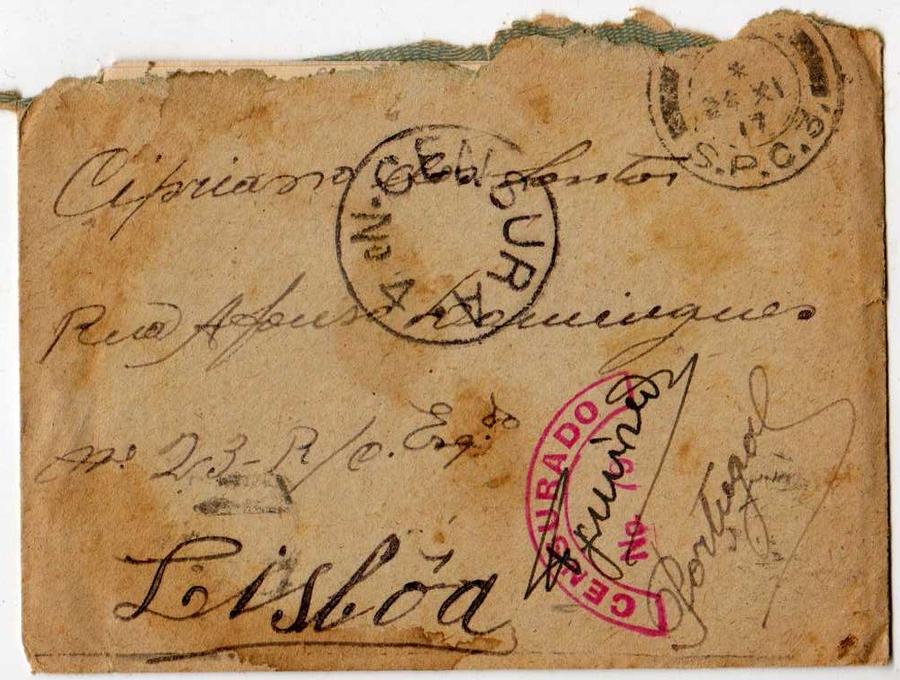 * 24 XI 17 S.P.C. 3.
CENSURA N.º 4
Cipriano dos Santos
Rua Afonso Domingues
Nº 23-R/c. Esq.do
Lisbôa
CENSURADO No
Portugal